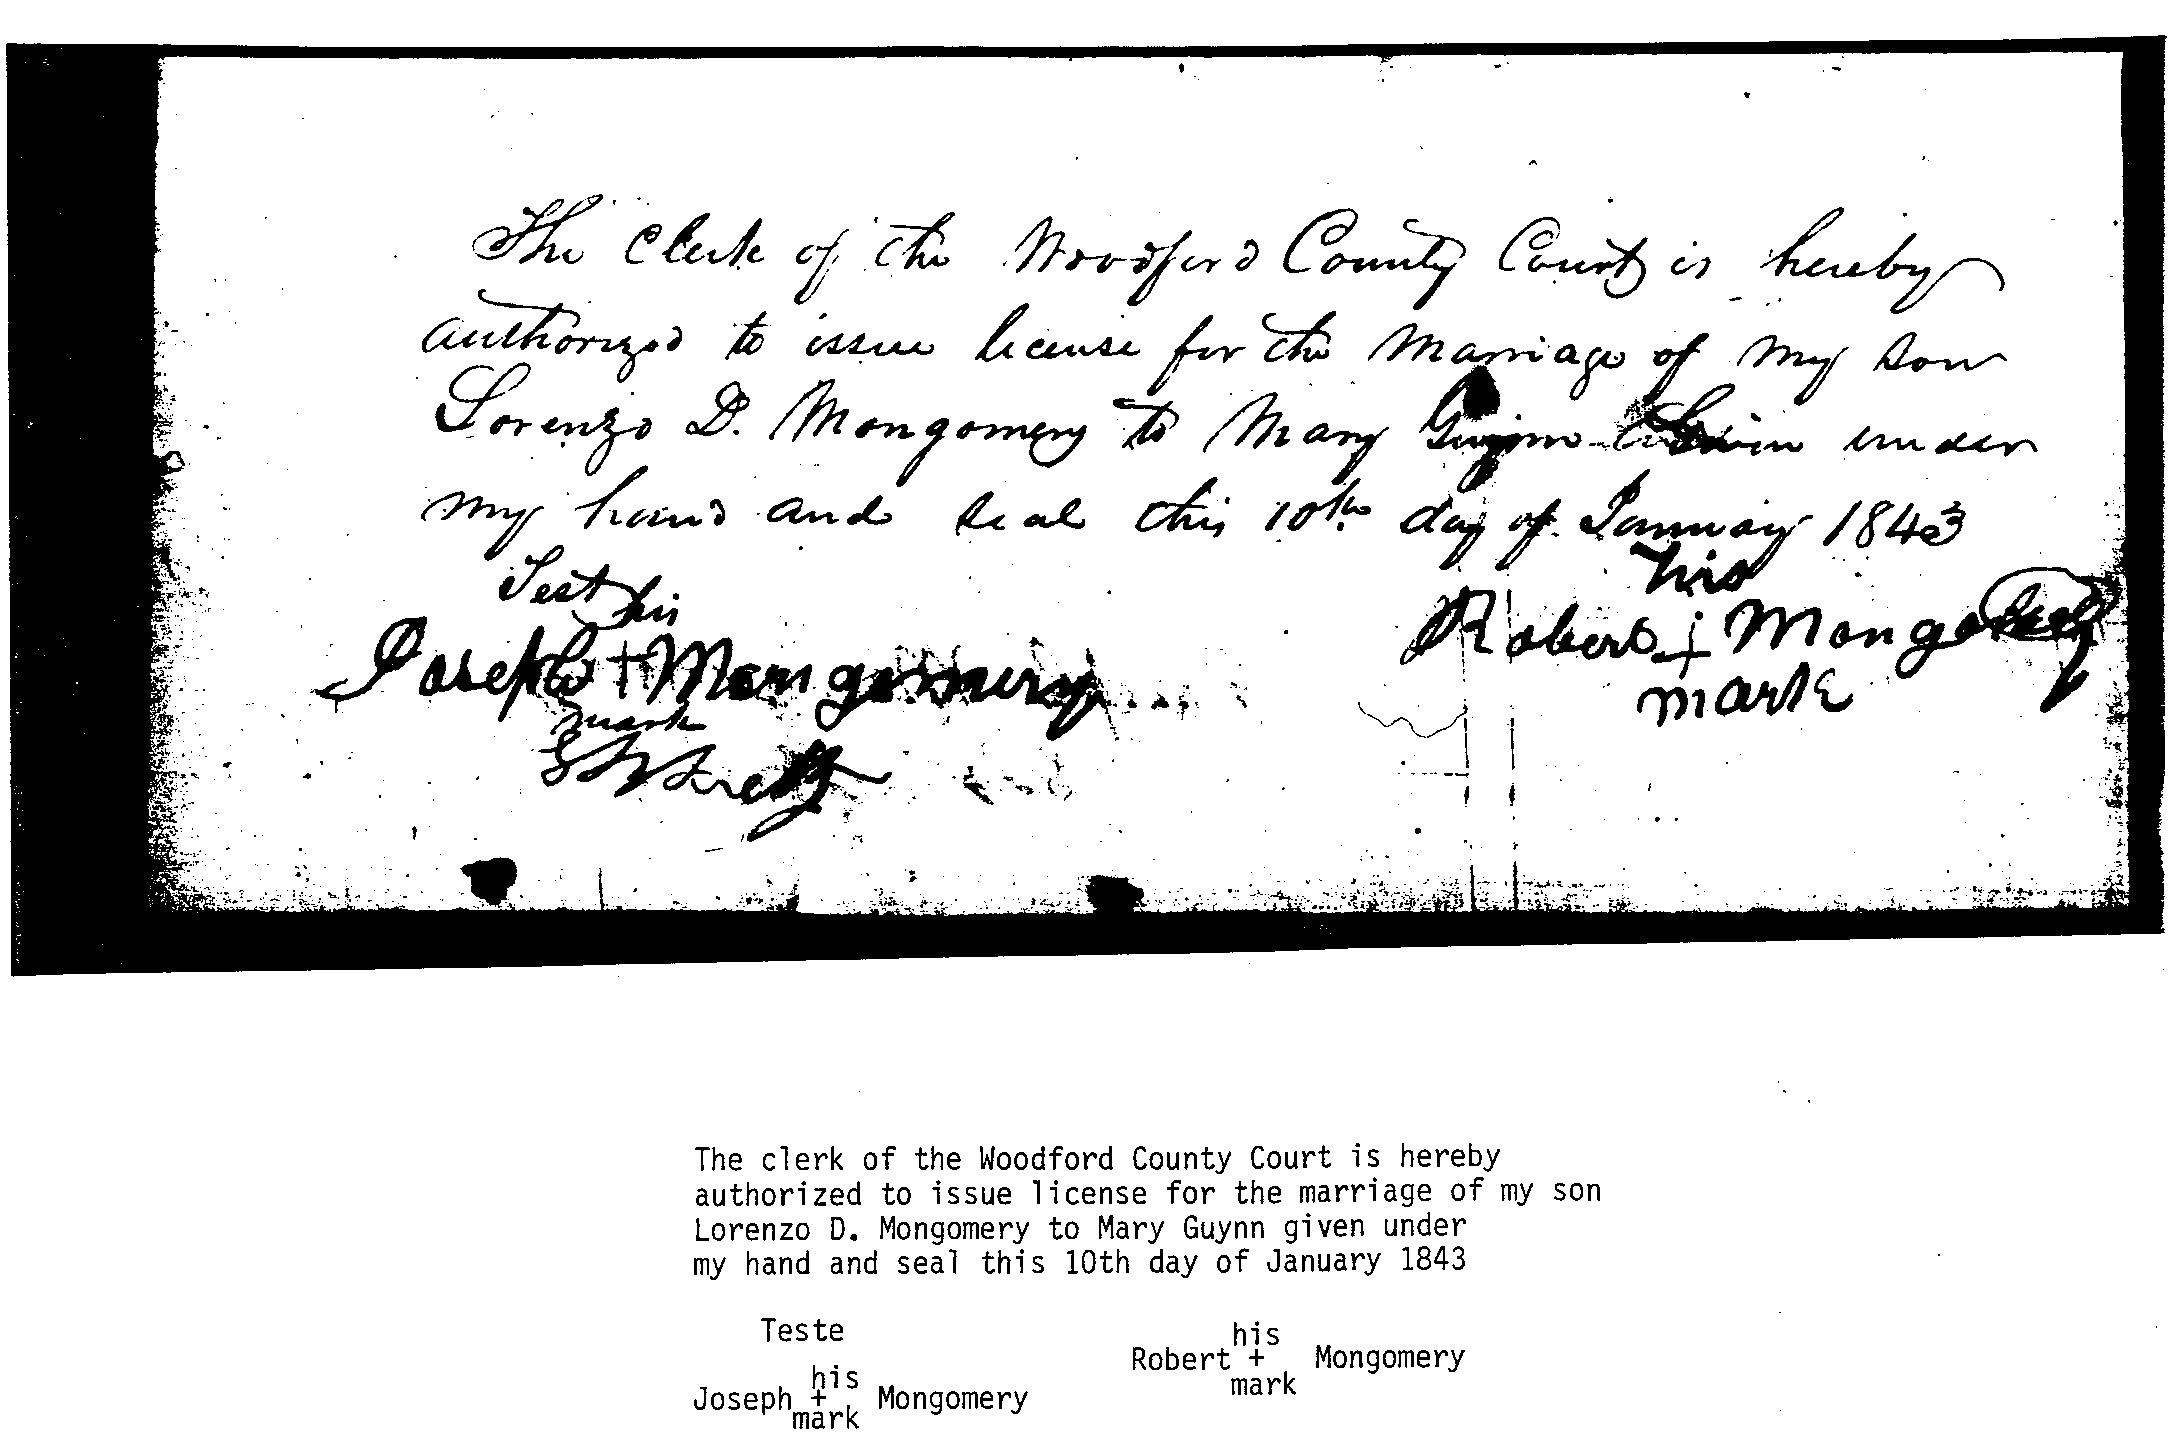 The Clerk of the Woodford County Court is hereby
authorized to issue license for the Marriage of my son
Lorenzo D. Mongomery to Mary Guynn Given under
my hand and seal this 10th day of January 1843
Test his
his
Joseph + Mongomery
Robert + Mongomery Seal
mark
mark
The clerk of the Woodford County Court is hereby
authorized to issue license for the marriage of my son
Lorenzo D. Mongomery to Mary Guynn given under
my hand and seal this 10th day of January 1843
Teste
his
Robert + Mongomery
mark
his
Joseph + Mongomery
mark